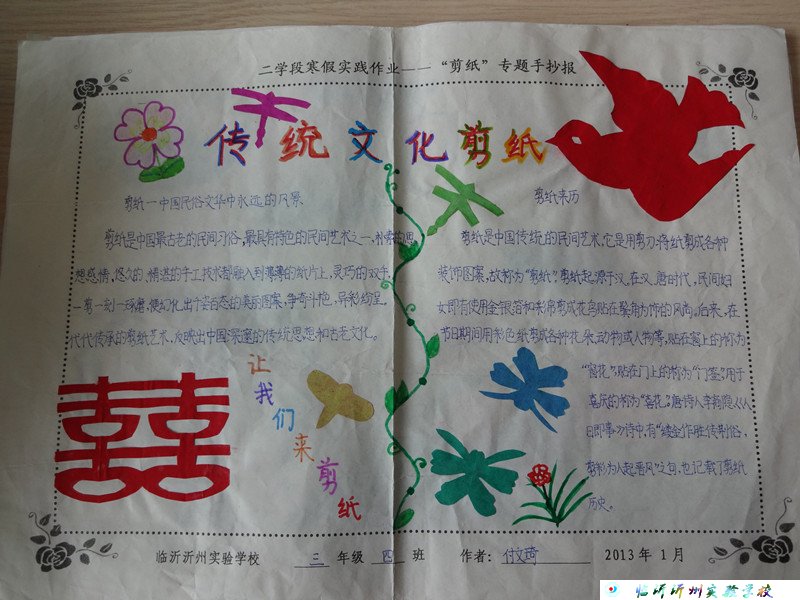 二学段寒假实践作业——“剪纸”专题手抄报
传统文化剪纸
剪纸—中国民俗文华中永远的风景
剪纸是中国最古老的民间习俗,最具有特色的民间艺术之一,朴素的思
想感情,悠久的、精湛的手工技术都融入到薄薄的纸片上,灵巧的双手,
一剪一刻一琢磨,便幻化出千姿百态的美丽图案,争奇斗艳,异彩纷呈。
代代传承的剪纸艺术,反映出中国深邃的传统思想和古老文化。
让我们来剪纸
剪纸来历
剪纸是中国传统的民间艺术,它是用剪刀将纸剪成各种
装饰图案,故称为“剪纸”。剪纸起源于汉,在汉、唐时代,民间妇
女即有使用金银箔和彩帛剪成花鸟贴在鬓角为饰的风尚。后来,在
节日期间用彩色纸剪成各种花朵、动物或人物等,贴在窗上的称为
“窗花”,贴在门上的称为“门签”,用于
喜庆的称为“喜花”。唐诗人李商隐《人
日即事》诗中,有“镂金作胜传荆俗,
剪彩为人起晋风”之句,也记载了剪纸
历史。
临沂沂州实验学校 三 年级 四 班 作者: 付文琦 2013年1月
临沂沂州实验学校